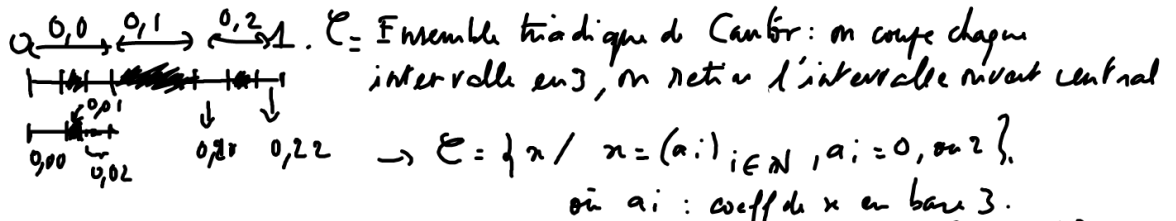 0 0,0 0,1 0,2 1. C = Ensemble triadique de Cantor : on coupe chaque
intervalle en 3, on retire l'intervalle ouvert central
0,01
0,00 0,02 0,20 0,22 → C = { x / x = (ai) i∈N, ai = 0, ou 2 }.
où ai : coeff de x en base 3.